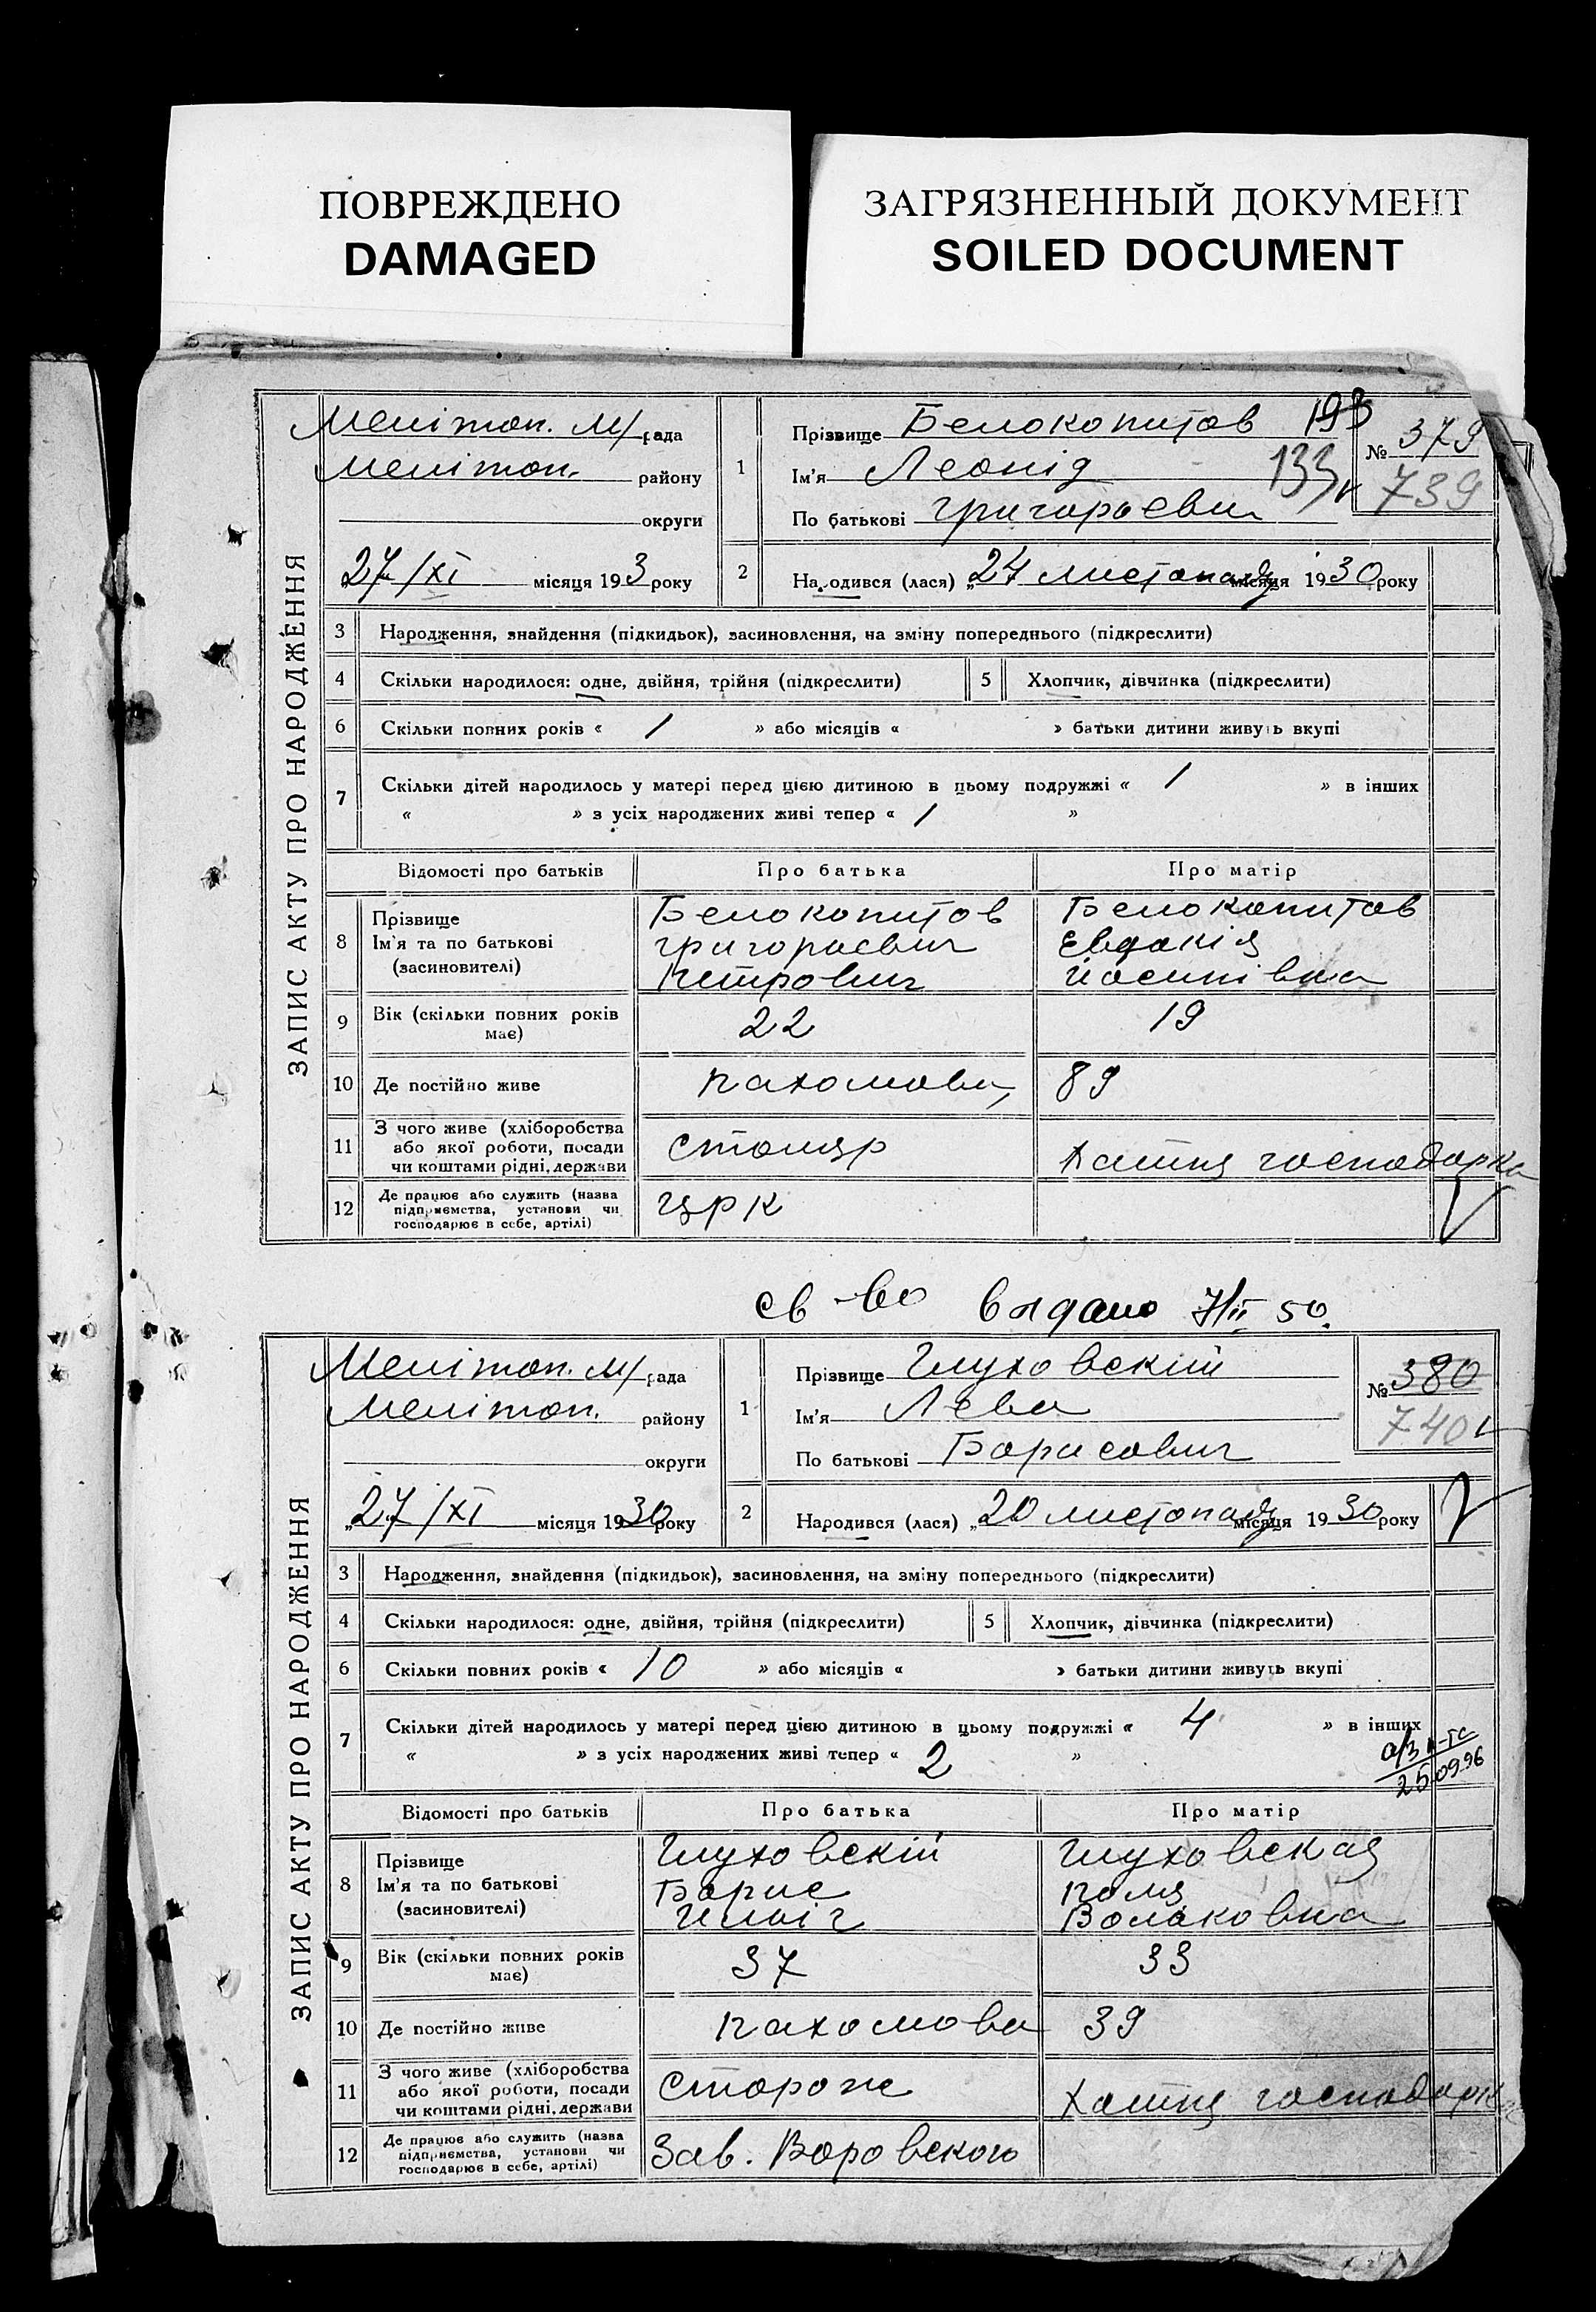 ПОВРЕЖДЕНО
DAMAGED
ЗАГРЯЗНЕННЫЙ ДОКУМЕНТ
SOILED DOCUMENT
ЗАПИС АКТУ ПРО НАРОДЖЕННЯ
Мелітоп. м/рада
Мелітоп. району
округи
27/XI місяця 193 року
1
Прізвище Белокопитов 193
Ім'я Леонід 133
По батькові Григорьевич
№ 379
739
2
Народився (лася) „24 листопаду місяця 1930 року
3 Народження, знайдення (підкидьок), засиновлення, на зміну попереднього (підкреслити)
4 Скільки народилося: одне, двійня, трійня (підкреслити) 5 Хлопчик, дівчинка (підкреслити)
6 Скільки повних років « 1 » або місяців « » батьки дитини живуть вкупі
7 Скільки дітей народилось у матері перед цією дитиною в цьому подружжі « 1 » в інших
« » з усіх народжених живі тепер « 1 »
Відомості про батьків Про батька Про матір
8 Прізвище Белокопитов Белокопитов
Ім'я та по батькові Григорьевич Евдокія
(засиновителі) Петрович Йосипівна
9 Вік (скільки повних років має) 22 19
10 Де постійно живе Пахомова, 89
11 З чого живе (хліборобства
або якої роботи, посади
чи коштами рідні, держави Столяр Хатня господарка
12 Де працює або служить (назва
підприємства, установи чи
господарює в себе, артілі) ЦРК
св-во видано 7/II 50.
ЗАПИС АКТУ ПРО НАРОДЖЕННЯ
Мелітоп. м/рада
Мелітоп. району
округи
„27/XI місяця 1930 року
1
Прізвище Глуховскій
Ім'я Лева
По батькові Борисович
№ 380
740
2
Народився (лася) „20 листопаду місяця 1930 року
3 Народження, знайдення (підкидьок), засиновлення, на зміну попереднього (підкреслити)
4 Скільки народилося: одне, двійня, трійня (підкреслити) 5 Хлопчик, дівчинка (підкреслити)
6 Скільки повних років « 10 » або місяців « » батьки дитини живуть вкупі
7 Скільки дітей народилось у матері перед цією дитиною в цьому подружжі « 4 » в інших
« » з усіх народжених живі тепер « 2 »
25.09.96
Відомості про батьків Про батька Про матір
8 Прізвище Глуховскій Глуховская
Ім'я та по батькові Борис Поля
(засиновителі) Ильіч
9 Вік (скільки повних років має) 37 33
10 Де постійно живе Пахомова 39
11 З чого живе (хліборобства
або якої роботи, посади
чи коштами рідні, держави Стороже Хатня господарка
12 Де працює або служить (назва
підприємства, установи чи
господарює в себе, артілі) Зав. Воровского